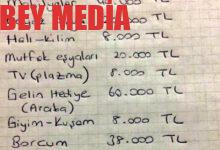 BEY MEDIA
Halı-Kilim 8.000 TL
Mutfak eşyaları 20.000 TL
TV (plazma) 8.000 TL
Gelin Hediye 60.000 TL
(Araba)
Giyim-Kuşam 8.000 TL
Borcum 38.000 TL